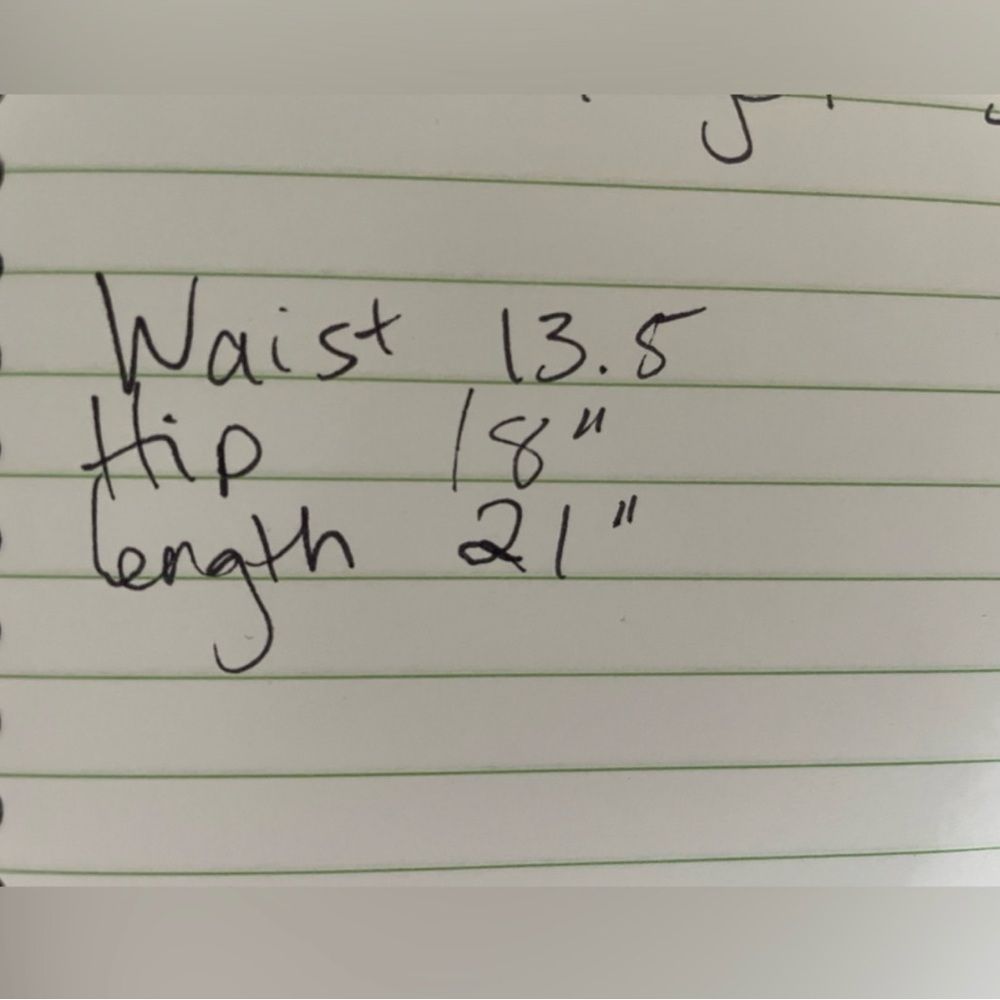 Waist 13.5
Hip 18"
length 21"